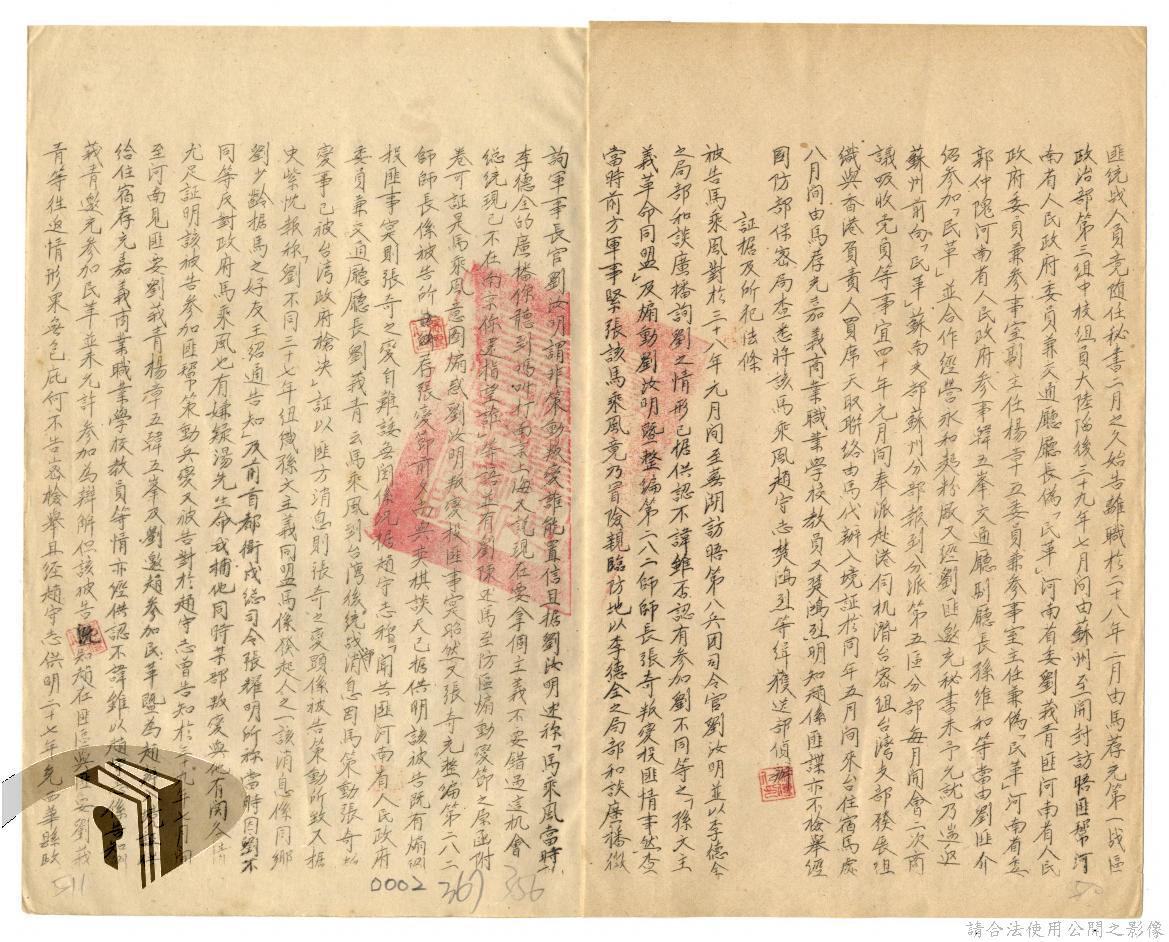 匪統战人員竟随任秘書二月之久始告離職於二十八年二月由馬荐充第一战區
政治部第三組中校組員大陸陥後三十九年七月间由蘇州至開封訪晤匪幇河
南省人民政府委員兼交通廳廳長偽「民革」河南省委劉莪青匪河南省人民
政府委員兼参事室副主任楊章五委員兼参事室主任兼偽「民革」河南省委
郭仲隗河南省人民政府参事韓五峯交通廳副廳長孫維和等當由劉匪介
绍参加「民革」並合作經营永和麪粉廠又經劉匪邀充秘書未予允就乃遄返
蘇州前向「民革」蘇南支部蘇州分部報到分派第五區分部每月開會二次商
議吸收党員等事宜四十年元月间奉派赴港伺机潛台密组台湾支部發展组
織與香港負責人買席天取聯络由馬代辦入境証於同年五月间來台住宿馬處
八月间由馬存充嘉義商業職業学校教員又樊鴻烈明知趙係匪諜亦不檢舉經
國防部保密局查悉將該馬乘风趙守志樊鴻烈等缉獲送部偵辦
証据及所犯法條
被告馬乘風對於三十八年元月间至蕪湖訪晤第八兵团司令官劉汝明並以李德全
之局部和談廣播詢劉之情形已据供認不諱雖否認有参加劉不同等之「孫文主
義革命同盟」及煽動劉汝明暨整编第二八二師師長張奇叛変投匪情事然查
當時前方軍事緊張該馬乘風竟乃冒险親臨防地以李德全之局部和談廣播徵
詢軍事長官劉汝明謂非策動叛变誰能置信且据劉汝明述称「馬乘風當時以
李德全的廣播你聽到嗎叫打南京上海尤記現在要拿個主義不要错過這机會
総統現已不在南京你還指望誰」等語並有劉陳述馬至防區煽動变節之原函附
卷可証是馬乘風意图煽惑劉汝明叛变投匪事实昭然又張奇充整编第二八二
師師長係被告所荐張变節前又與與奕棋談天已据供明該被告既有煽惑
投匪事实則張奇之变自難諉無関係况据趙守志称「闻共匪河南省人民政府
委員兼交通廳廳長劉莪青云馬乘風到台湾後统战消息因馬策動張奇叛
变事已被台湾政府槍决」証以匪方消息則張奇之变顕係被告策動所致又据
史紫忱報称「劉不同三十七年组織孫文主義同盟馬係發起人之一該消息係同鄉
劉少齡据馬之好友王绍通告知」及前首都衛戍総司令張耀明所称當時因劉不
同等反對政府馬乘風也有嫌疑湯先生命我捕他同時某部叛变與他有関各情
尤足証明該被告参加匪幇策動兵变又被告對於趙守志曾告知於三十九年七月间
至河南見匪委劉莪青楊章五韓五峯及劉邀趙参加民革暨為趙
给住宿存充嘉義商業職業学校教員等情亦經供認不諱雖以趙
義青邀充参加民革並未允許参加為辩解但該被告既知趙在匪區與匪委劉莪
青等往返情形果無包庇何不告密檢舉且經趙守志供明二十七年充西華縣政
511
0002
367
356
510
請合法使用公開之影像